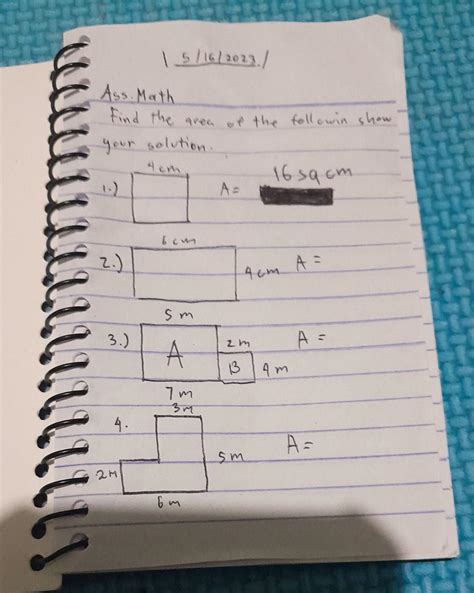 5/16/2023
Ass. Math
Find the area of the followin show
your solution.
4cm
1.) A= 16sqcm
6cm
2.) 4cm A=
5m
3.) A 2m A=
B 4m
7m
3m
4. 5m A=
2M
6m